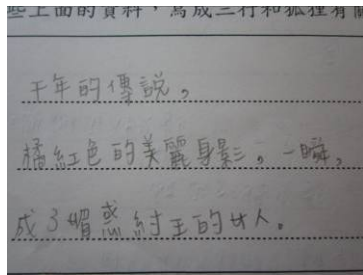 些上面的資料，寫成三行和狐狸有關
千年的傳說，
橘紅色的美麗身影。一瞬，
成了媚惑紂王的女人。